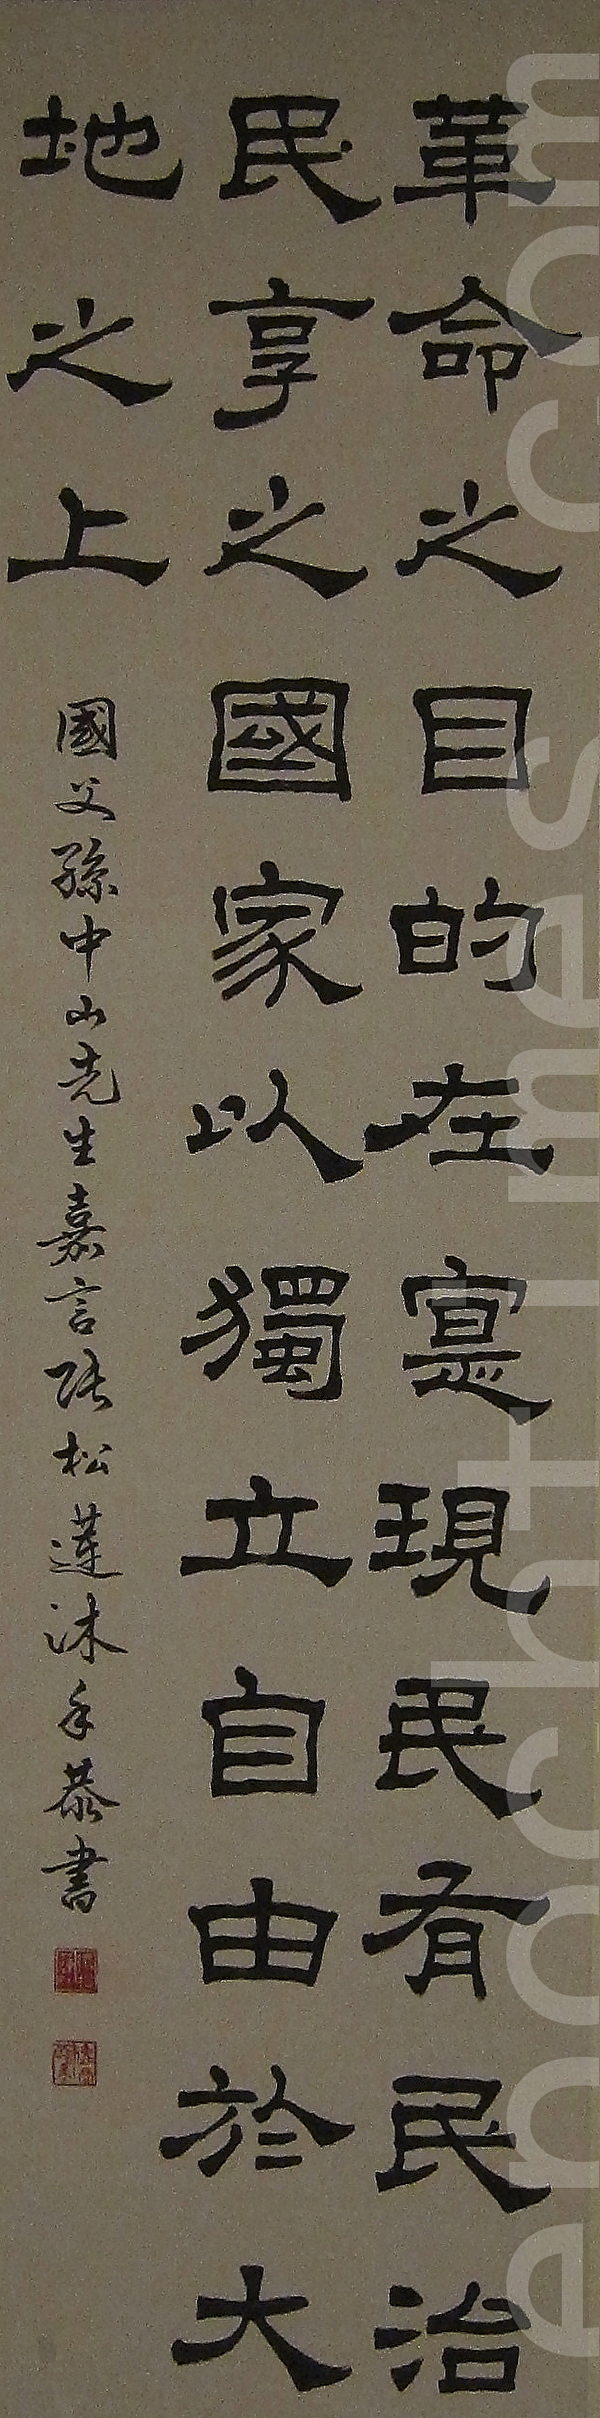 革命之目的在寔現民有民治
民享之國家以獨立自由於大
地之上
國父孫中山先生嘉言張松蓮沐手恭書
epochtimes.com